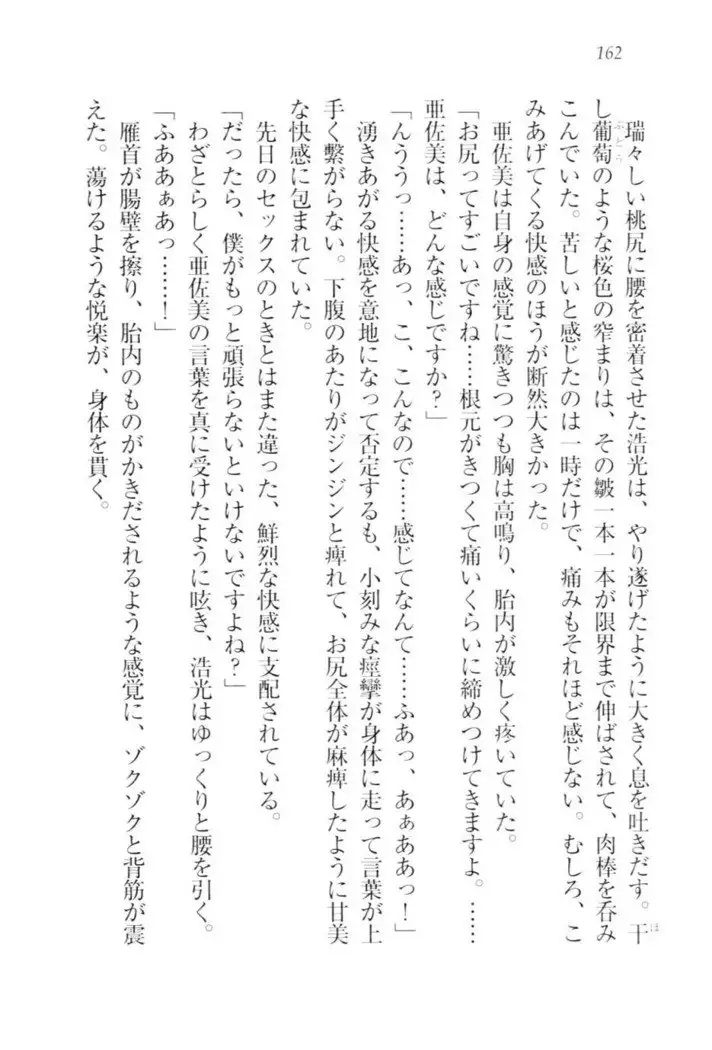 162
瑞々しい桃尻に腰を密着させた浩光は、やり遂げたように大きく息を吐きだす。干
し葡萄のような桜色の窄まりは、その皺一本一本が限界まで伸ばされて、肉棒を呑み
こんでいた。苦しいと感じたのは一時だけで、痛みもそれほど感じない。むしろ、こ
みあげてくる快感のほうが断然大きかった。
亜佐美は自身の感覚に驚きつつも胸は高鳴り、胎内が激しく疼いていた。
「お尻ってすごいですね……根元がきつくて痛いくらいに締めつけてきますよ。……
亜佐美は、どんな感じですか?」
「んううっ……あっ、こ、こんなので……感じてなんて……ふあっ、あぁああっ!」
湧きあがる快感を意地になって否定するも、小刻みな痙攣が身体に走って言葉が上
手く繋がらない。下腹のあたりがジンジンと痺れて、お尻全体が麻痺したように甘美
な快感に包まれていた。
先日のセックスのときとはまた違った、鮮烈な快感に支配されている。
「だったら、僕がもっと頑張らないといけないですよね?」
わざとらしく亜佐美の言葉を真に受けたように呟き、浩光はゆっくりと腰を引く。
「ふああぁあっ……!」
雁首が腸壁を擦り、胎内のものがかきだされるような感覚に、ゾクゾクと背筋が震
えた。蕩けるような悦楽が、身体を貫く。